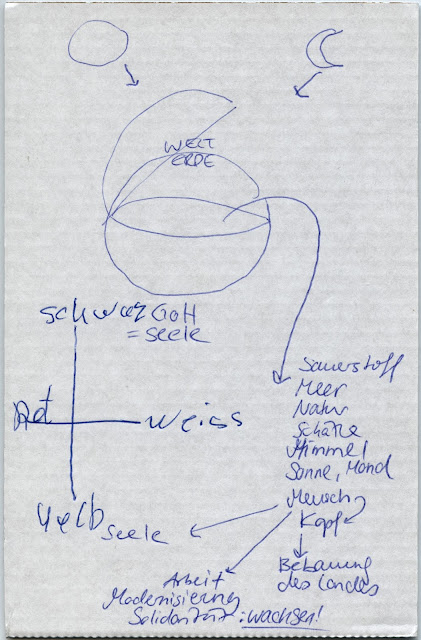 WELT
ERDE
schwarz Gott
= Seele
Rot
weiss
Gelb
Seele
Sauerstoff
Meer
Natur
Schätze
Himmel
Sonne, Mond
Mensch
Kopf
Bebauung
des Landes
Arbeit
Modernisierung
Solidarität: wachsen!